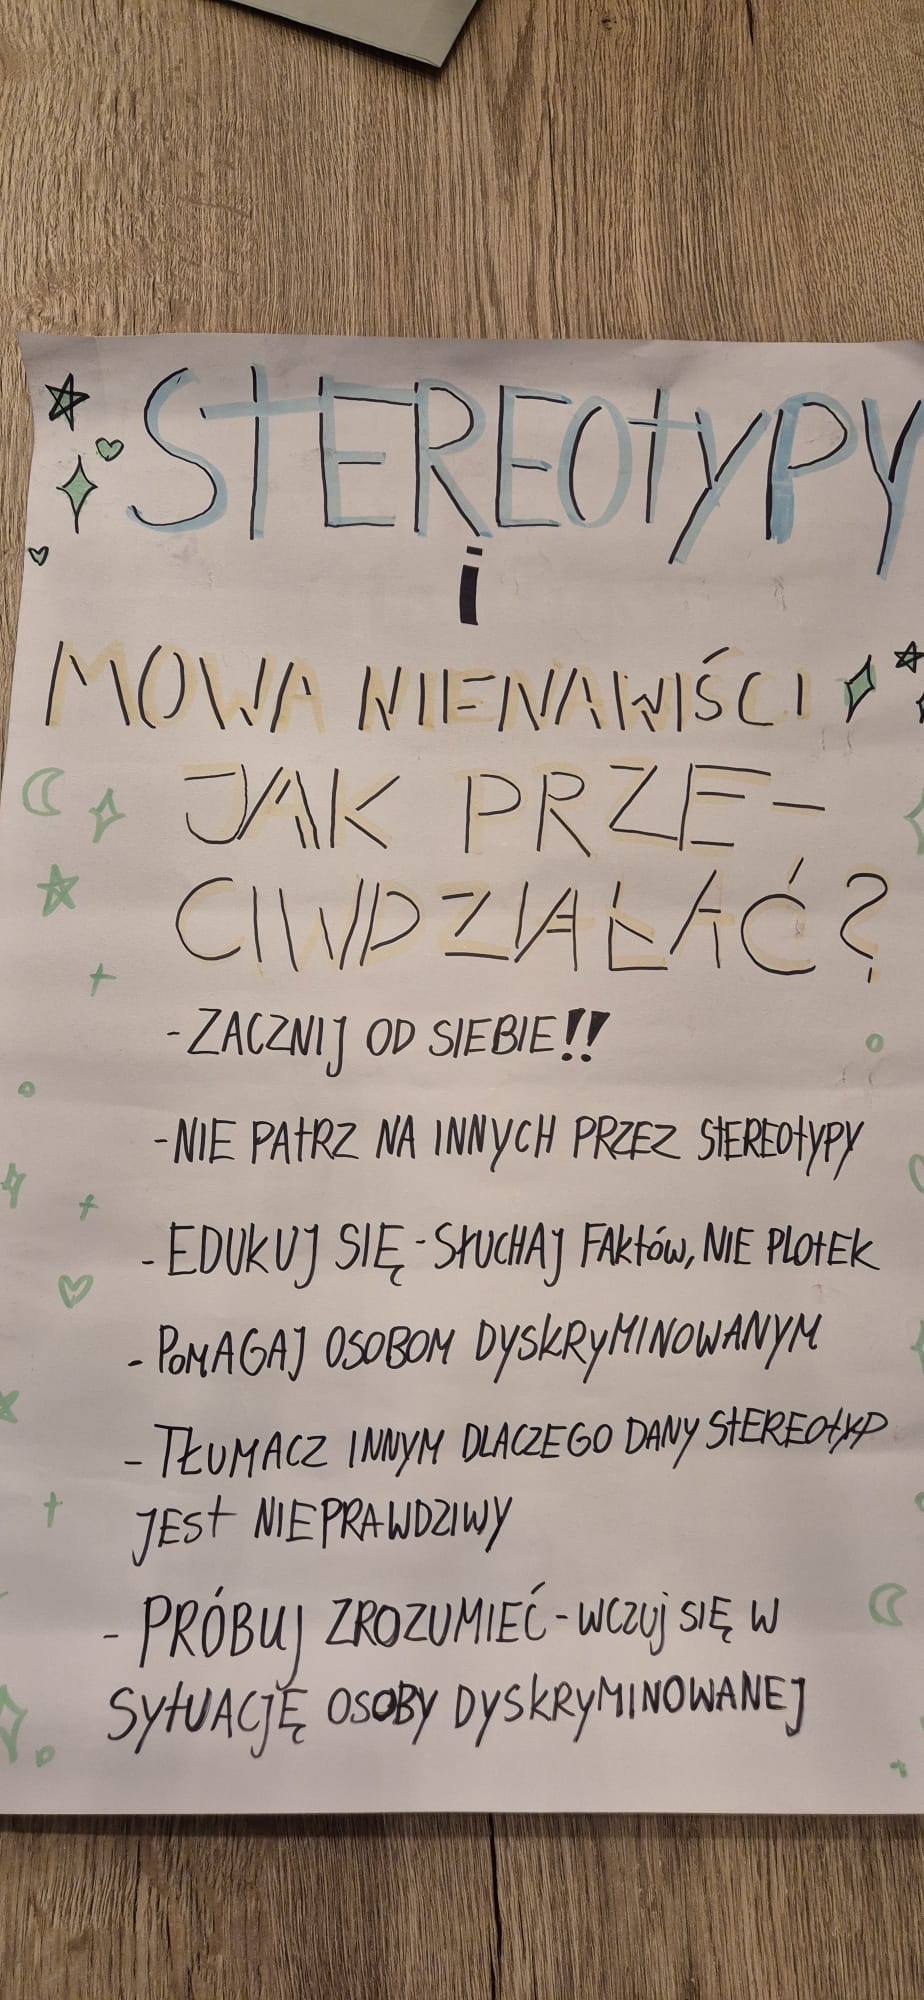 STEREOTYPY
i
MOWA NIENAWIŚCI
JAK PRZE-
CIWDZIAŁAĆ?
- ZACZNIJ OD SIEBIE!!
- NIE PATRZ NA INNYCH PRZEZ STEREOTYPY
- EDUKUJ SIĘ - SŁUCHAJ FAKTÓW, NIE PLOTEK
- POMAGAJ OSOBOM DYSKRYMINOWANYM
- TŁUMACZ INNYM DLACZEGO DANY STEREOTYP
JEST NIEPRAWDZIWY
- PRÓBUJ ZROZUMIEĆ - WCZUJ SIĘ W
SYTUACJĘ OSOBY DYSKRYMINOWANEJ